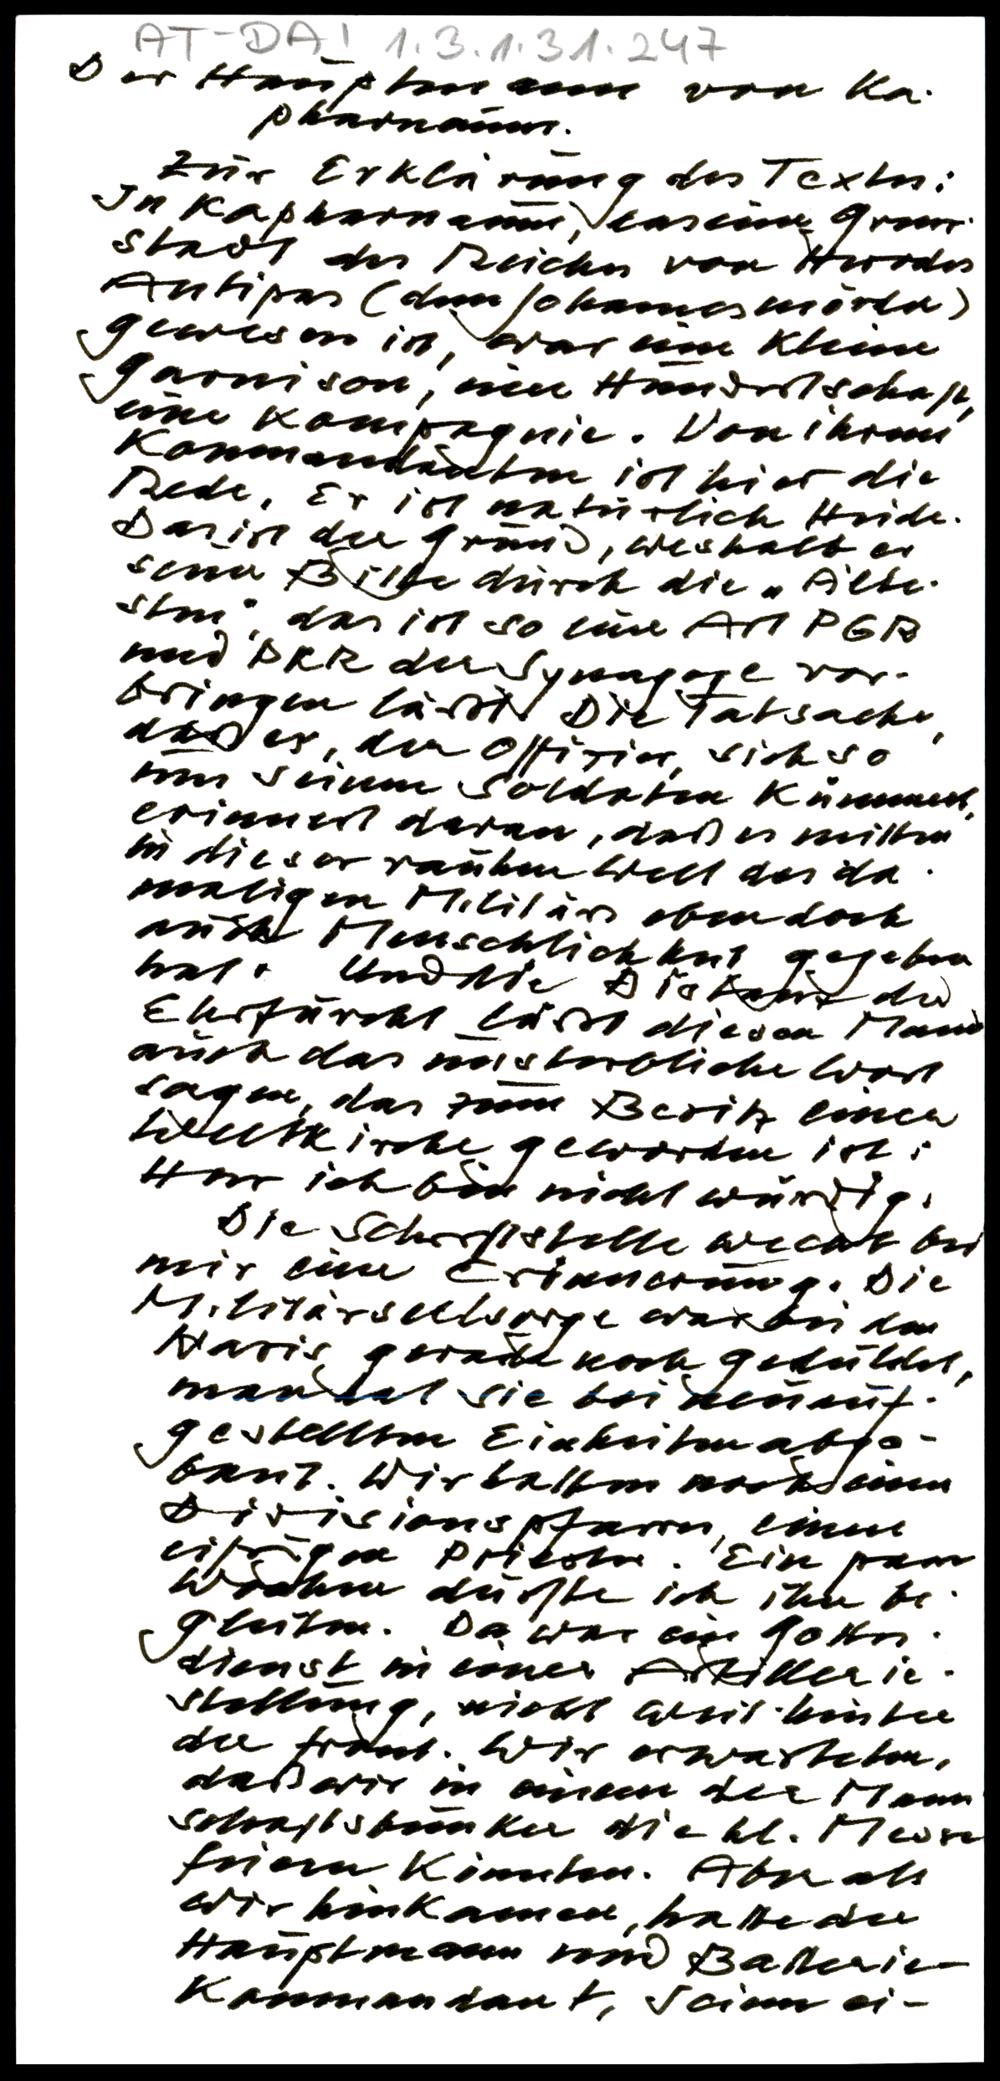 AT-DAI 1.3.1.31.247
Der Hauptmann von Ka-
pharnaum.
Zur Erklärung des Textes:
In Kapharnaum, das eine Grenz-
stadt des Reiches von Herodes
Antipas (dem Johannesmörder)
gewesen ist, war eine kleine
Garnison, eine Hundertschaft,
eine Kompagnie. Von ihrem
Kommandanten ist hier die
Rede. Er ist natürlich Heide.
Das ist der Grund, weshalb er
seine Bitte durch die „Älte-
sten", das ist so eine Art PGR
und PKR der Synagoge vor-
bringen läßt. Die Tatsache,
daß er, der Offizier, sich so
um seinen Soldaten kümmert,
erinnert daran, daß es mitten
in dieser rauhen Welt des da-
maligen Militärs eben doch
auch Menschlichkeit gegeben
hat. Und die Distanz der
Ehrfurcht läßt diesen Mann
auch das unsterbliche Wort
sagen, das zum Besitz einer
Weltkirche geworden ist:
Herr ich bin nicht würdig.
Die Schriftstelle weckt bei
mir eine Erinnerung. Die
Militärseelsorge war bei den
Nazis gerade noch geduldet,
man hat sie bei neu auf-
gestellten Einheiten abge-
baut. Wir hatten noch einen
Divisionspfarrer, einen
eifrigen Priester. Ein paar
Wochen durfte ich ihn be-
gleiten. Da war ein Gottes-
dienst in einer Artillerie-
stellung, nicht weit hinter
der Front. Wir erwarteten,
daß wir in einem der Mann-
schaftsbunker die hl. Messe
feiern könnten. Aber als
wir hinkamen, hatte der
Hauptmann und Batterie-
kommandant, seinen ei-